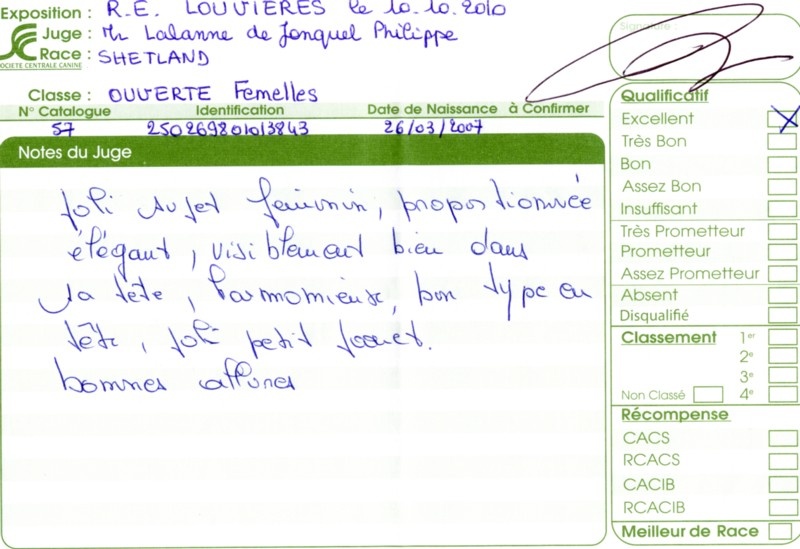 Exposition : R.E. LOUVIERES le 10.10.2010
Juge : Mr Lalanne de Jonquel Philippe
Race : SHETLAND
SOCIETE CENTRALE CANINE
Classe : OUVERTE Femelles
N° Catalogue Identification Date de Naissance à Confirmer
57 250269801013843 26/03/2007
Notes du Juge
Joli sujet féminin, proportionnée
élégant, visiblement bien dans
sa tête, harmonieuse, bon type en
tête, joli petit fouet.
bonnes allures
Signature
Qualificatif
Excellent X
Très Bon
Bon
Assez Bon
Insuffisant
Très Prometteur
Prometteur
Assez Prometteur
Absent
Disqualifié
Classement 1er
2e
3e
Non Classé 4e
Récompense
CACS
RCACS
CACIB
RCACIB
Meilleur de Race